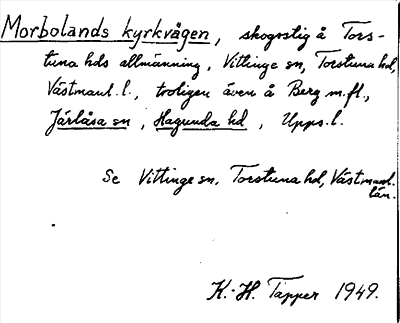 Morbolands kyrkvägen, skogsstig å Tors-
tuna hds allmänning, Vittinge sn, Torstuna hd,
Västmanl.l., troligen även å Berg m.fl.,
Järlåsa sn, Hagunda hd, Upps.l.
Se Vittinge sn. Torstuna hd, Västmanl.
län.
K.-H. Tapper 1949.